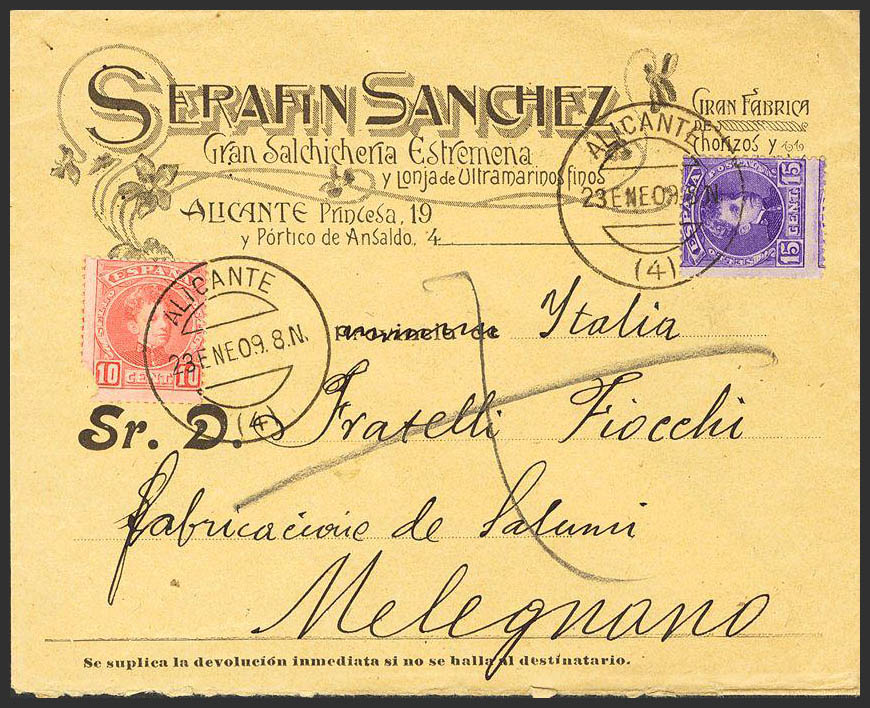 SERAFIN SANCHEZ
GRAN FABRICA
DE
Chorizos y
Gran Salchicheria Estremeña
y Lonja de Ultramarinos finos
ALICANTE Princesa, 19
y Pórtico de Ansaldo, 4
ALICANTE
23 ENE 09. 8 N.
(4)
ESPAÑA
CORREOS
15 CENT 15
ESPAÑA
10 CENT 10
ALICANTE
23 ENE 09. 8 N.
(4)
provincia de Italia
Sr. D. Fratelli Fiocchi
Fabricacione de Salumi
Melegnano
Se suplica la devolución inmediata si no se halla al destinatario.